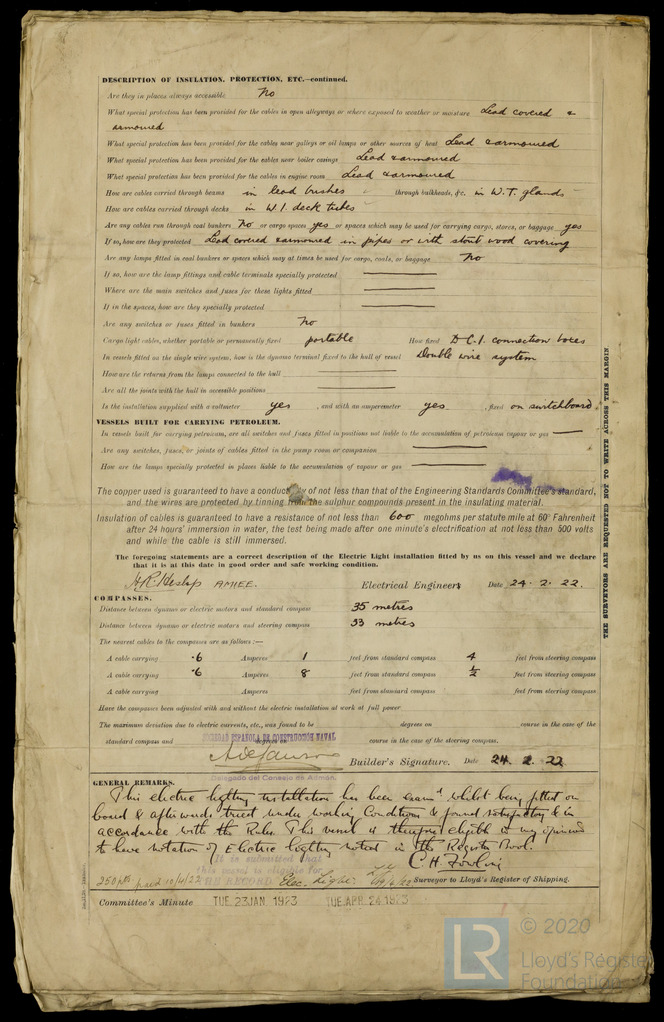 DESCRIPTION OF INSULATION, PROTECTION, ETC.—continued.
Are they in places always accessible No
What special protection has been provided for the cables in open alleyways or where exposed to weather or moisture Lead covered &
armoured
What special protection has been provided for the cables near galleys or oil lamps or other sources of heat Lead & armoured
What special protection has been provided for the cables near boiler casings Lead & armoured
What special protection has been provided for the cables in engine room Lead & armoured
How are cables carried through beams in lead bushes through bulkheads, &c. in W.T. glands
How are cables carried through decks in W.I. deck tubes
Are any cables run through coal bunkers No or cargo spaces yes or spaces which may be used for carrying cargo, stores, or baggage yes
If so, how are they protected Lead covered & armoured in pipes or with stout wood covering
Are any lamps fitted in coal bunkers or spaces which may at times be used for cargo, coals, or baggage No
If so, how are the lamp fittings and cable terminals specially protected
Where are the main switches and fuses for these lights fitted
If in the spaces, how are they specially protected
Are any switches or fuses fitted in bunkers No
Cargo light cables, whether portable or permanently fixed portable How fixed D.C.I. connection boxes
In vessels fitted on the single wire system, how is the dynamo terminal fixed to the hull of vessel Double wire system
How are the returns from the lamps connected to the hull
Are all the joints with the hull in accessible positions
Is the installation supplied with a voltmeter yes , and with an amperemeter yes , fixed on switchboard
VESSELS BUILT FOR CARRYING PETROLEUM.
In vessels built for carrying petroleum, are all switches and fuses fitted in positions not liable to the accumulation of petroleum vapour or gas
Are any switches, fuses, or joints of cables fitted in the pump room or companion
How are the lamps specially protected in places liable to the accumulation of vapour or gas
The copper used is guaranteed to have a conductivity of not less than that of the Engineering Standards Committee's standard,
and the wires are protected by tinning from the sulphur compounds present in the insulating material.
Insulation of cables is guaranteed to have a resistance of not less than 600 megohms per statute mile at 60° Fahrenheit
after 24 hours' immersion in water, the test being made after one minute's electrification at not less than 500 volts
and while the cable is still immersed.
The foregoing statements are a correct description of the Electric Light installation fitted by us on this vessel and we declare
that it is at this date in good order and safe working condition.
A.R. Heslop AMIEE. Electrical Engineers Date 24. 2. 22.
COMPASSES.
Distance between dynamo or electric motors and standard compass 35 metres
Distance between dynamo or electric motors and steering compass 33 metres
The nearest cables to the compasses are as follows:—
A cable carrying .6 Amperes 1 feet from standard compass 4 feet from steering compass
A cable carrying .6 Amperes 8 feet from standard compass ½ feet from steering compass
A cable carrying Amperes feet from standard compass feet from steering compass
Have the compasses been adjusted with and without the electric installation at work at full power
The maximum deviation due to electric currents, etc., was found to be degrees on course in the case of the
standard compass and degrees on course in the case of the steering compass.
SOCIEDAD ESPAÑOLA DE CONSTRUCCIÓN NAVAL
Builder's Signature. Date 24. 2. 22
Delegado del Consejo de Admón.
GENERAL REMARKS.
This electric lighting installation has been exam'd whilst being fitted on
board & afterwards tried under working Conditions & found satisfactory & in
accordance with the Rules. This vessel is therefore eligible in my opinion
to have notation of Electric lighting noted in the Register Book.
It is submitted that
this vessel is eligible for
THE RECORD Elec. Light.
250 paid 10/4/22 Surveyor to Lloyd's Register of Shipping.
Committee's Minute TUE. 23 JAN. 1923 TUE. APR. 24 1923
THE SURVEYORS ARE REQUESTED NOT TO WRITE ACROSS THIS MARGIN
LR
© 2020
Lloyd's Register
Foundation